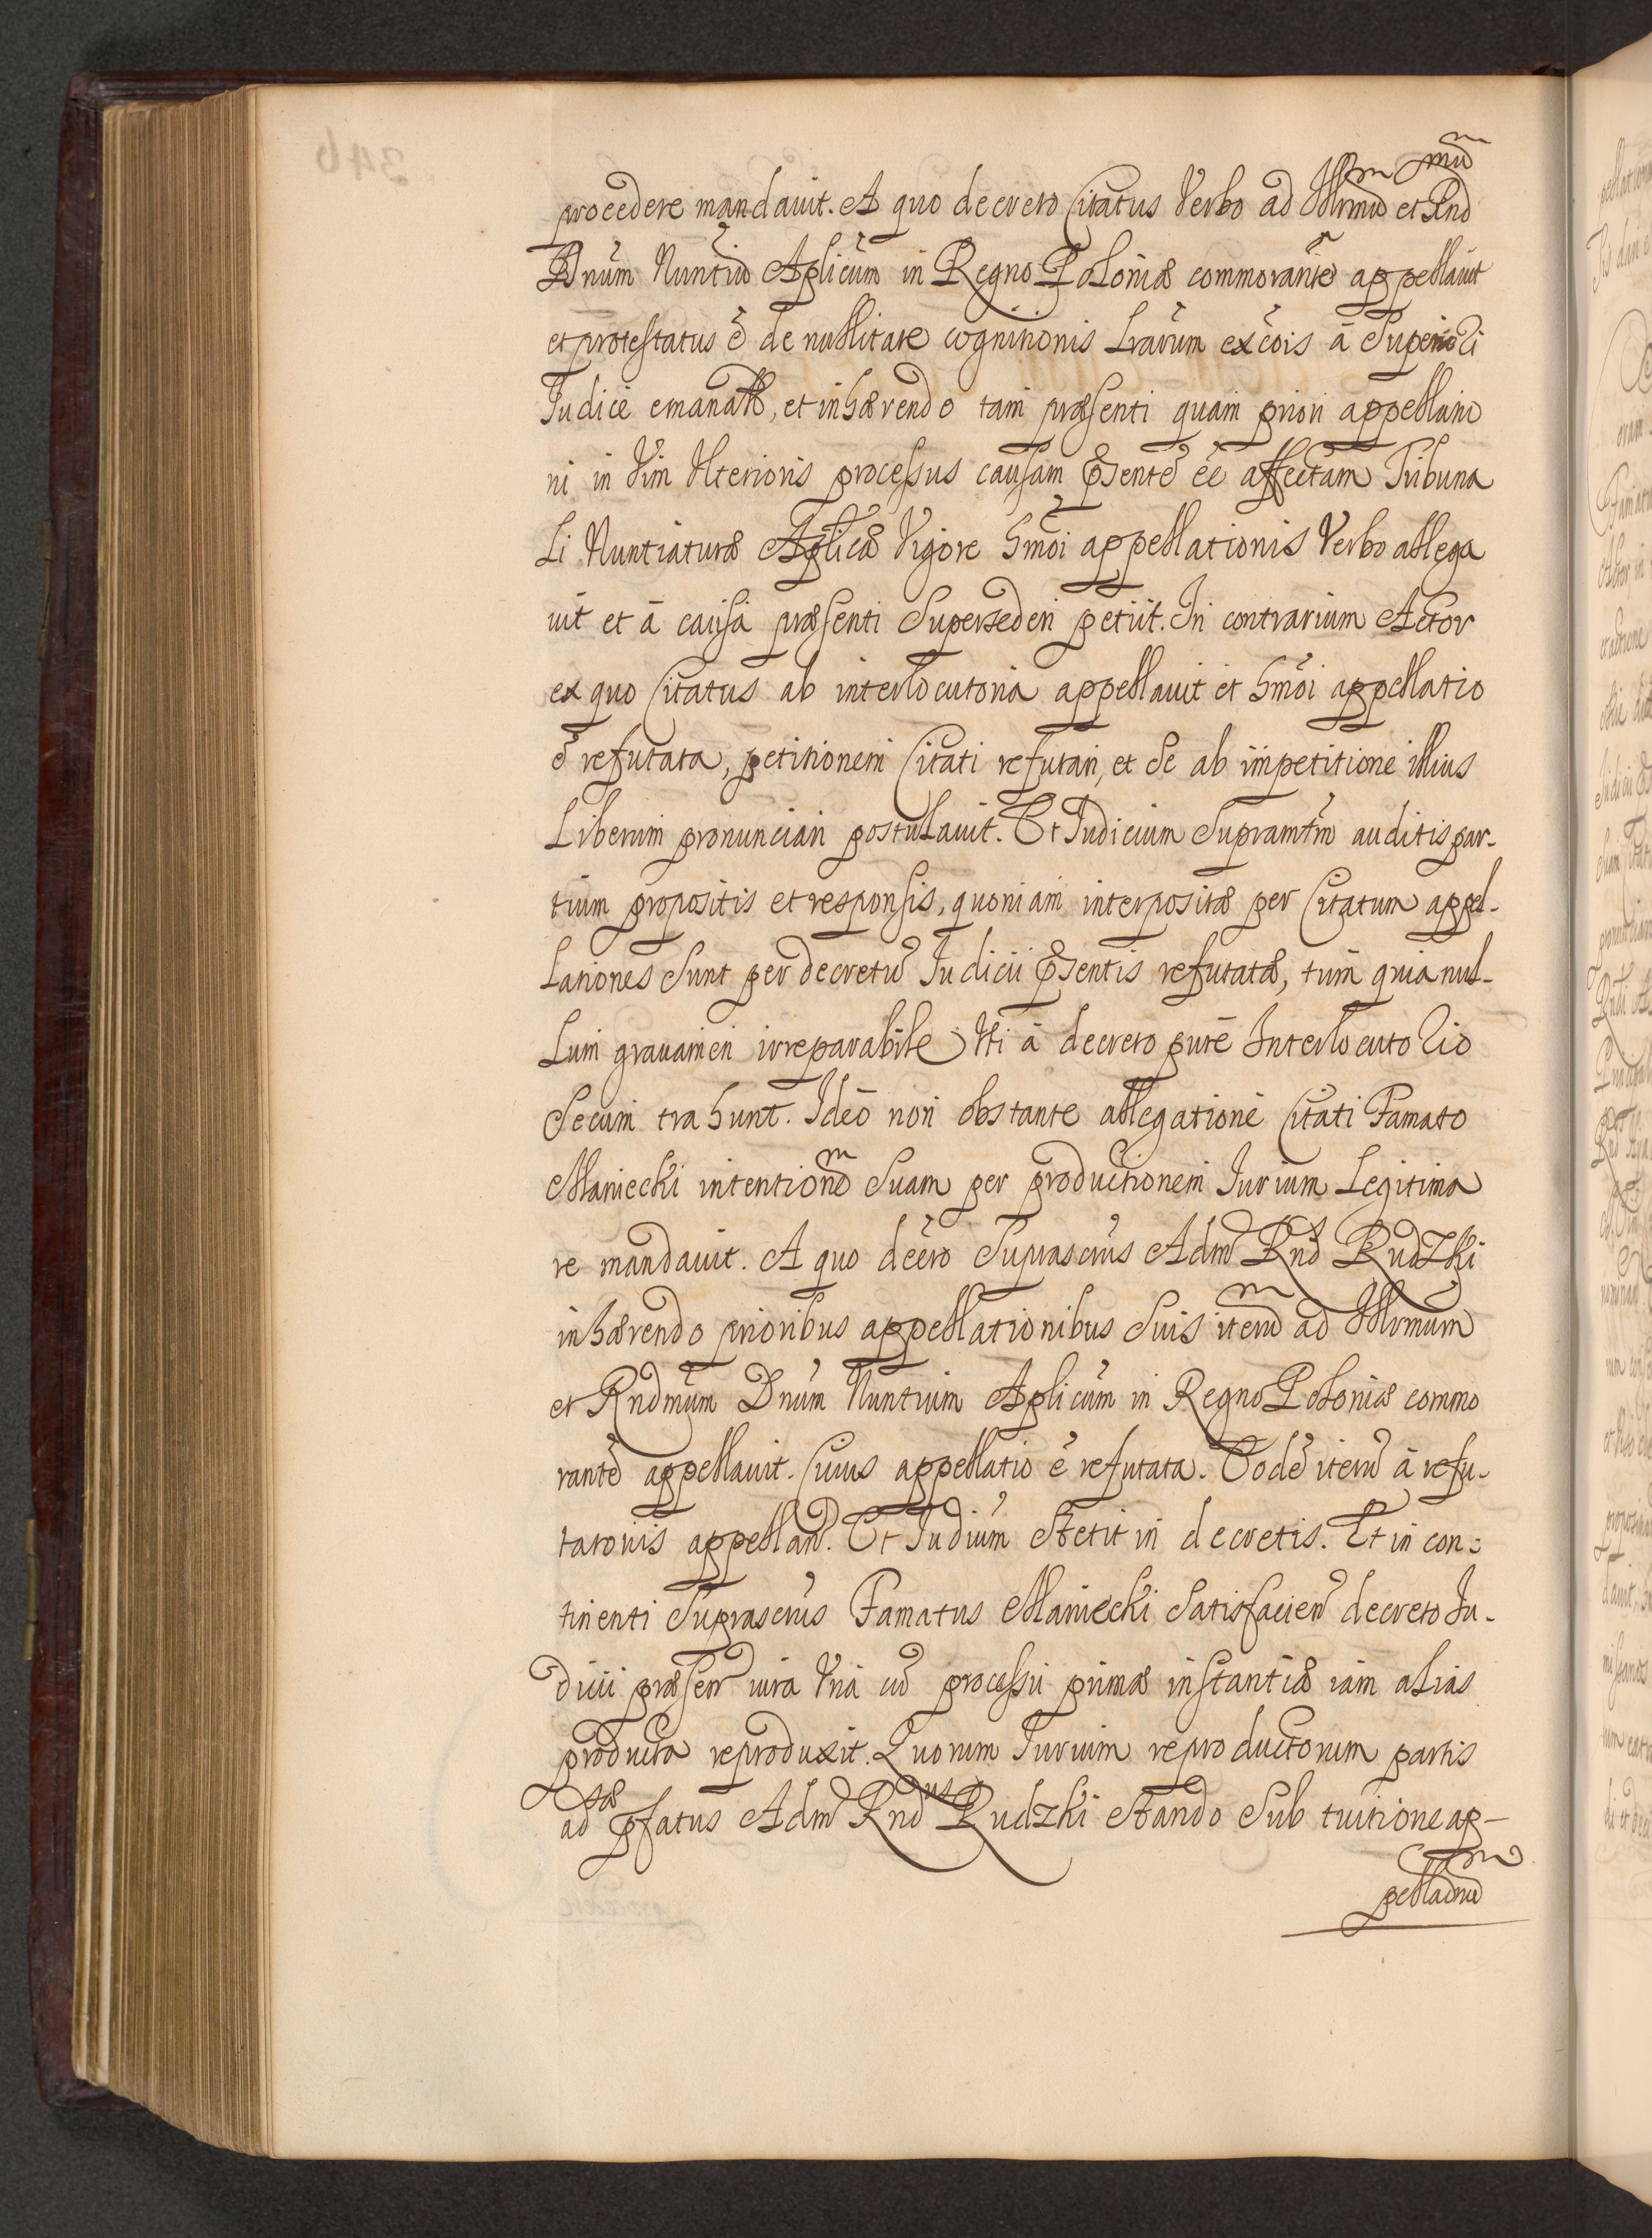 procedere mandauit. A quo decreto Citatus Verbo ad Illrmū et Rndmū
Dnūm Nuntiū Aplicūm in Regno Poloniæ commorantē appellauit
et protestatus ē de nullitate cognitionis Lrarūm exēcōis ā Superiori
Judice emanatæ, et inhærendo tam præsenti quam priori appellatio
ni in Vim Vlterioris processus causam præsentē eē affectam Tribuna
Li Nuntiaturæ Aplicæ Vigore hmōi appellationis Verbo allega
uit et ā causa præsenti Supersederi petiit. In contrarium Actor
ex quo Citatus ab interlocutoria appellauit et hmōi appellatio
ē refutata, petitionem Citati refutari, et Se ab impetitione illius
Liberum pronunciari postulauit. Et Judicium Supramtm auditis par-
tium propositis et responsis, quoniam interpositæ per Citatum appel-
Lationes Sunt per decretū Judicii præsentis refutatæ, tum quia nul-
Lum grauamen irreparabile Vti ā decreto purē Interlocutorio
Secum trahunt. Ideō non obstante allegatione Citati Famato
Maniecki intentionē Suam per productionem Jurium Legitima
re mandauit. A quo decro Suprascrus Adm Rnd Rudzki
inhærendo prioribus appellationibus Suis iterū ad Illrmum
et Rndmūm Dnūm Nuntium Aplicūm in Regno Poloniæ commo
rantē appellauit. Cuius appellatio ē refutata. Eodē iterū ā refu-
tatonis appellan. Et Judium Stetit in decretis. Et in con-
tinenti Suprascrus Famatus Maniecki Satisfacien decreto Ju-
dicii præsen iura Vna cū processu primæ instantiæ iam alias
producta reproduxit. Quorum Jurium reproductorum partis
ad præfatus Adm Rndus Rudzki Stando Sub tuitione ap-
pellaōnū